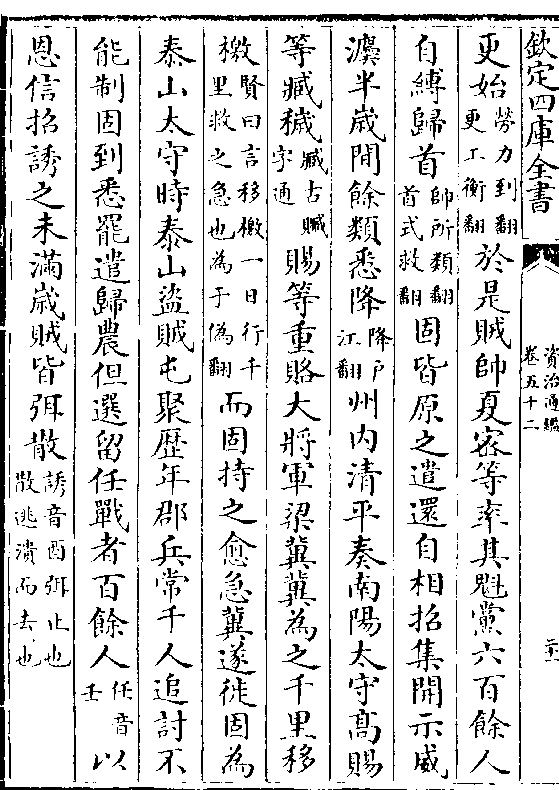 欽定四庫全書
資治通鑑
卷五十二
二十一
更始勞力到翻更工衡翻於是賊帥夏宻等率其魁黨六百餘人
自縛歸首帥所類翻首式救翻固皆原之遣還自相招集開示威
灋半歲間餘類悉降降戸江翻州内清平奏南陽太守髙賜
等臧穢臧古贓字通賜等重賂大將軍梁冀冀為之千里移
檄賢曰言移檄一日行千里救之急也為于偽翻而固持之愈急冀遂徙固為
泰山太守時泰山盜賊屯聚歴年郡兵常千人追討不
能制固到悉罷遣歸農但選留任戰者百餘人任音壬以
恩信招誘之未滿歲賊皆弭散誘音酉弭止也散逃潰而去也